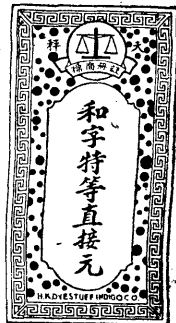 天祥
註册商標
和字特等直接元
H.K.DYESTUFF INDIGO.CO.